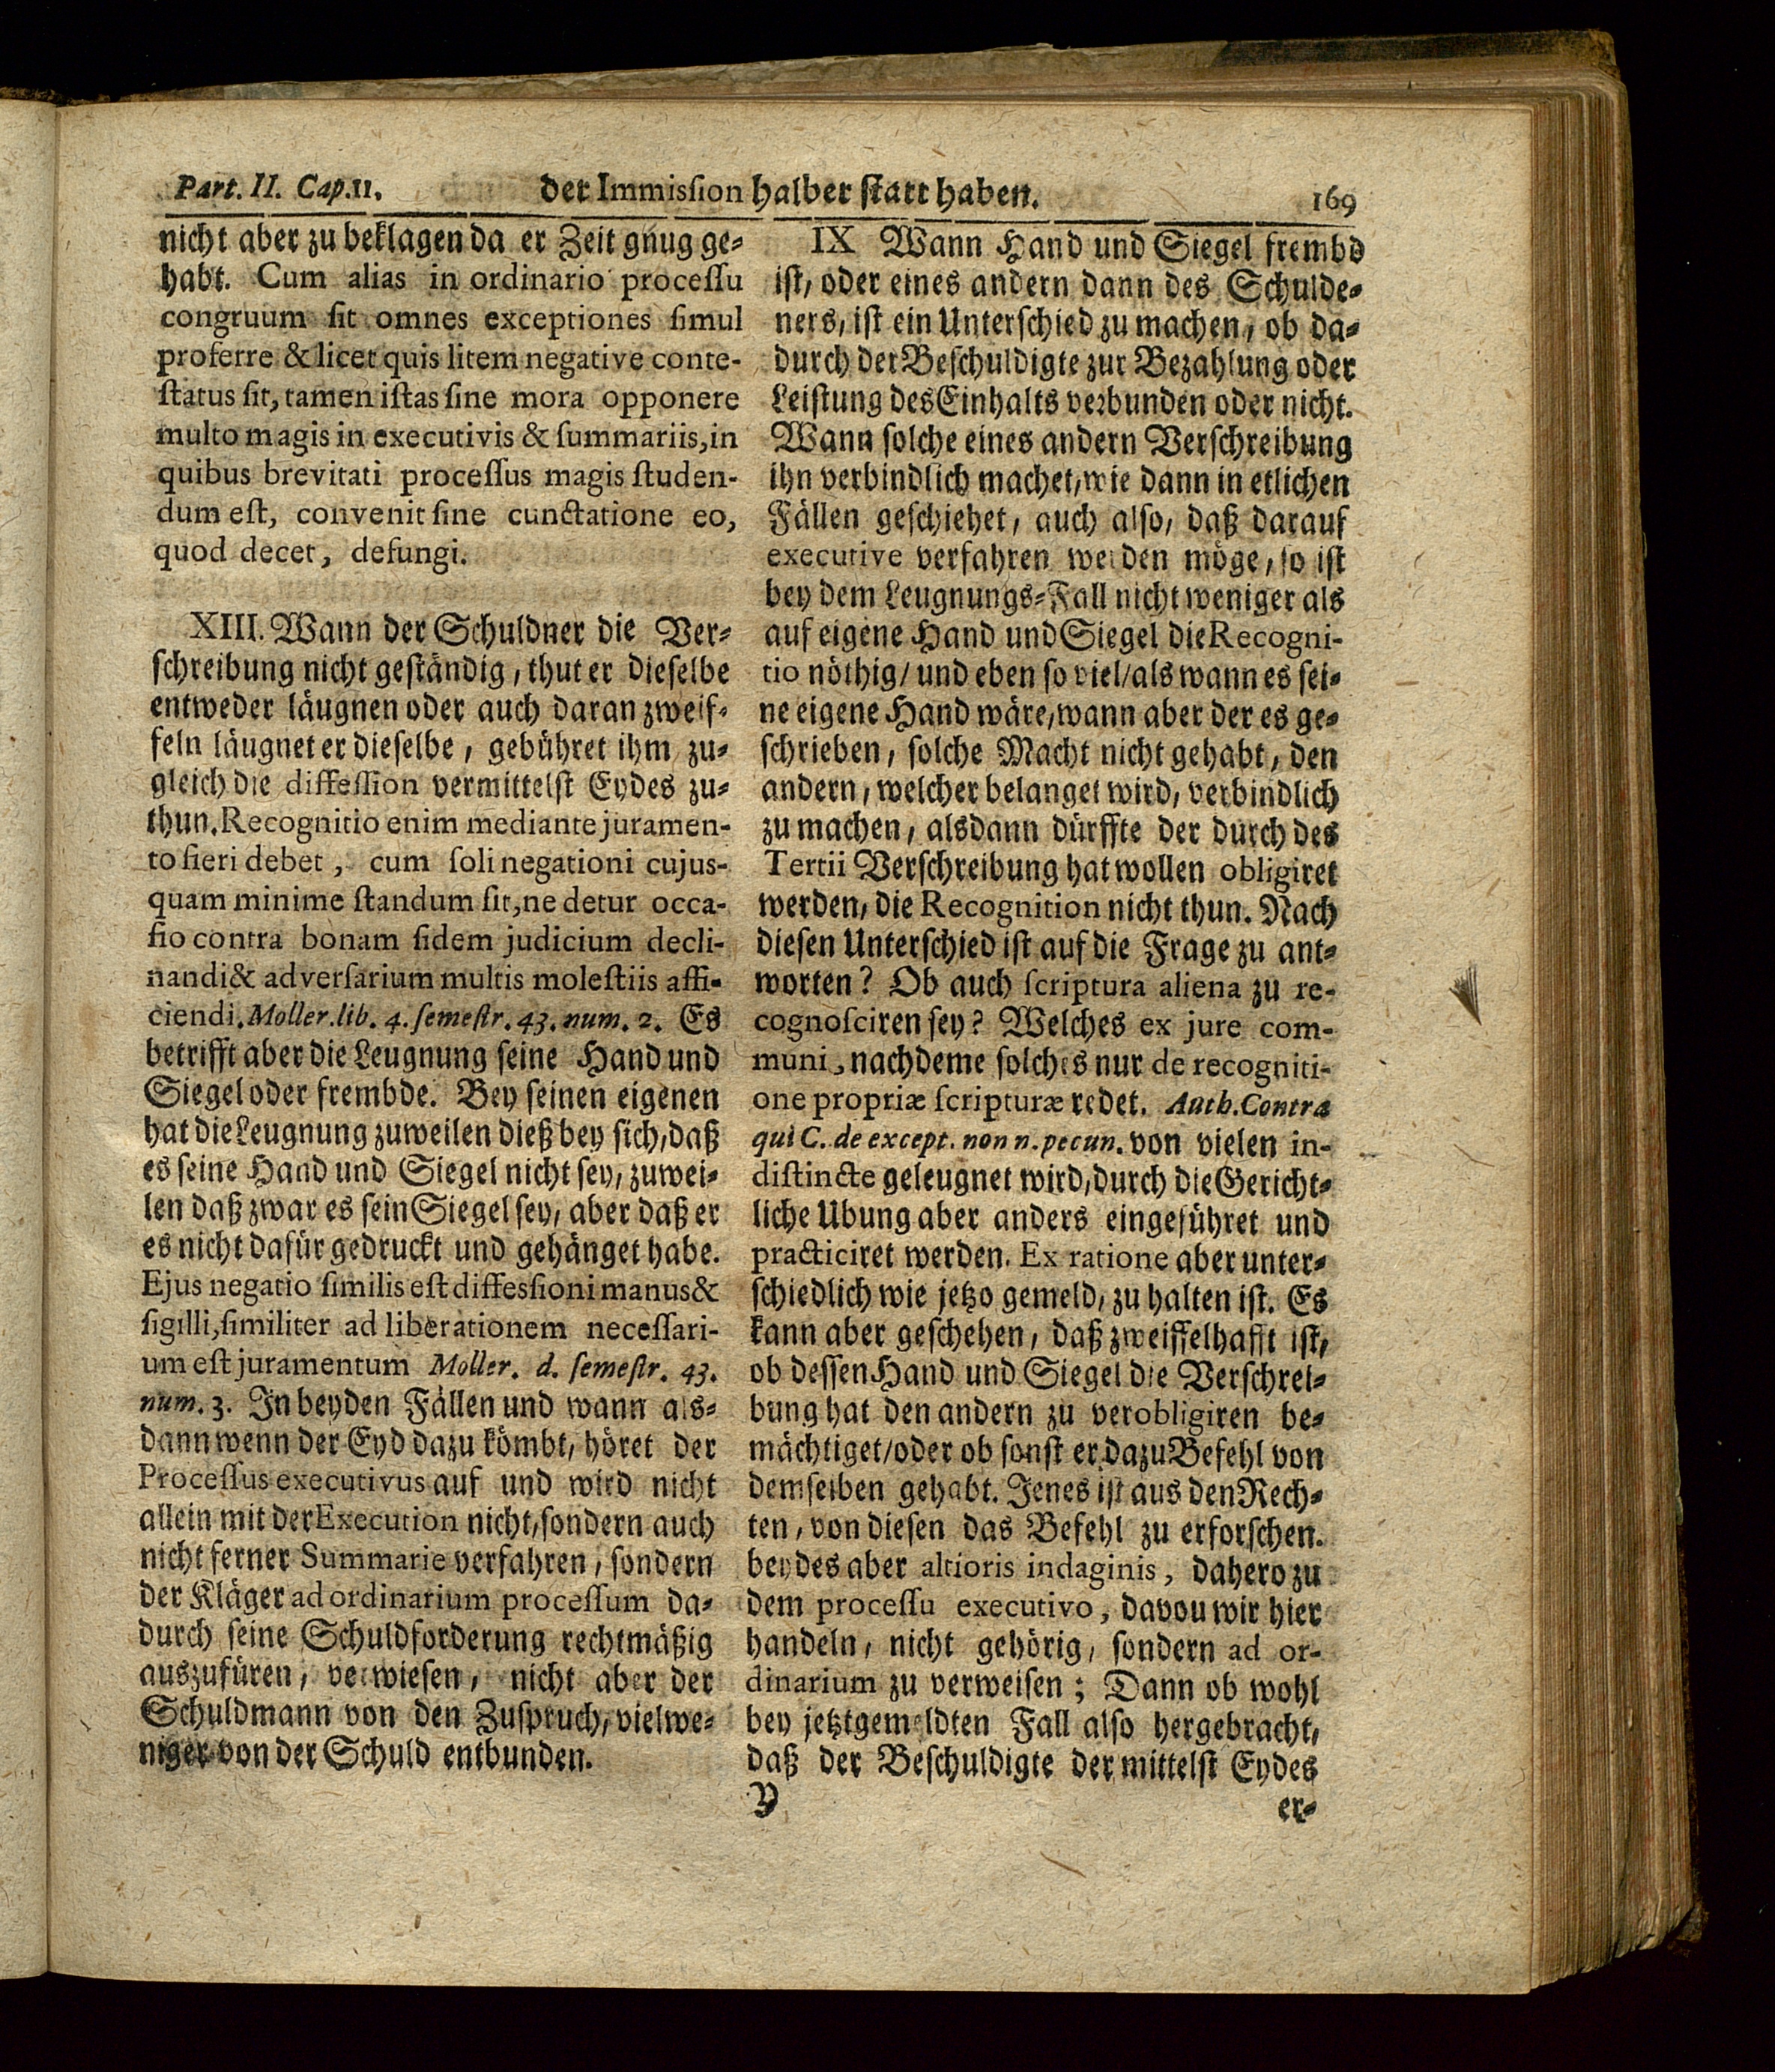 Part. II. Cap. 11. der Immisſion halber ſtatt haben. 169
nicht aber zu beklagen da er Zeit gnug ge-
habt. Cum alias in ordinario proceſſu
congruum ſit omnes exceptiones ſimul
proferre & licet quis litem negative conte-
ſtatus ſit, tamen iſtas ſine mora opponere
multo magis in executivis & ſummariis, in
quibus brevitati proceſſus magis ſtuden-
dum eſt, convenit ſine cunctatione eo,
quod decet, defungi.
XIII. Wann der Schuldner die Ver-
ſchreibung nicht geſtändig, thut er dieſelbe
entweder läugnen oder auch daran zweif-
feln läugnet er dieſelbe, gebühret ihm zu-
gleich die diffeſſion vermittelſt Eydes zu-
thun. Recognitio enim mediante juramen-
to fieri debet, cum ſoli negationi cujus-
quam minime ſtandum ſit, ne detur occa-
ſio contra bonam fidem judicium decli-
nandi & adverſarium multis moleſtiis affi-
ciendi. Moller. lib. 4. ſemeſtr. 43. num. 2. Es
betrifft aber die Leugnung ſeine Hand und
Siegel oder frembde. Bey ſeinen eigenen
hat die Leugnung zuweilen dieß bey ſich, daß
es ſeine Hand und Siegel nicht ſey, zuwei-
len daß zwar es ſein Siegel ſey, aber daß er
es nicht dafür gedruckt und gehänget habe.
Ejus negatio ſimilis eſt diffesſioni manus &
ſigilli, ſimiliter ad liberationem neceſſari-
um eſt juramentum Moller. d. ſemeſtr. 43.
num. 3. In beyden Fällen und wann als-
dann wenn der Eyd dazu kömbt, höret der
Proceſſus executivus auf und wird nicht
allein mit der Execution nicht, ſondern auch
nicht ferner Summarie verfahren, ſondern
der Kläger ad ordinarium proceſſum da-
durch ſeine Schuldforderung rechtmäßig
auszufüren, verwieſen, nicht aber der
Schuldmann von den Zuſpruch, vielwe-
niger von der Schuld entbunden.
IX Wann Hand und Siegel frembd
iſt, oder eines andern dann des Schulde-
ners, iſt ein Unterſchied zu machen, ob da-
durch der Beſchuldigte zur Bezahlung oder
Leiſtung des Einhalts verbunden oder nicht.
Wann ſolche eines andern Verſchreibung
ihn verbindlich machet, wie dann in etlichen
Fällen geſchiehet, auch alſo, daß darauf
executive verfahren werden möge, ſo iſt
bey dem Leugnungs-Fall nicht weniger als
auf eigene Hand und Siegel die Recogni-
tio nöthig/ und eben ſo viel/ als wann es ſei-
ne eigene Hand wäre, wann aber der es ge-
ſchrieben, ſolche Macht nicht gehabt, den
andern, welcher belanget wird, verbindlich
zu machen, alsdann dürffte der durch des
Tertii Verſchreibung hat wollen obligiret
werden, die Recognition nicht thun. Nach
dieſen Unterſchied iſt auf die Frage zu ant-
worten? Ob auch ſcriptura aliena zu re-
cognoſciren ſey? Welches ex jure com-
muni, nachdeme ſolches nur de recogniti-
one propriæ ſcripturæ redet. Auth. Contra
qui C. de except. non n. pecun. von vielen in-
diſtincte geleugnet wird, durch die Gericht-
liche Ubung aber anders eingeführet und
practiciret werden. Ex ratione aber unter-
ſchiedlich wie jetzo gemeld, zu halten iſt. Es
kann aber geſchehen, daß zweiffelhafft iſt,
ob deſſen Hand und Siegel die Verſchrei-
bung hat den andern zu verobligiren be-
mächtiget/ oder ob ſonſt er dazu Befehl von
demſelben gehabt. Jenes iſt aus den Rech-
ten, von dieſen das Befehl zu erforſchen.
beydes aber altioris indaginis, dahero zu
dem proceſſu executivo, davou wir hier
handeln, nicht gehörig, ſondern ad or-
dinarium zu verweiſen; Dann ob wohl
bey jetztgemeldten Fall alſo hergebracht,
daß der Beſchuldigte der mittelſt Eydes
Y er-